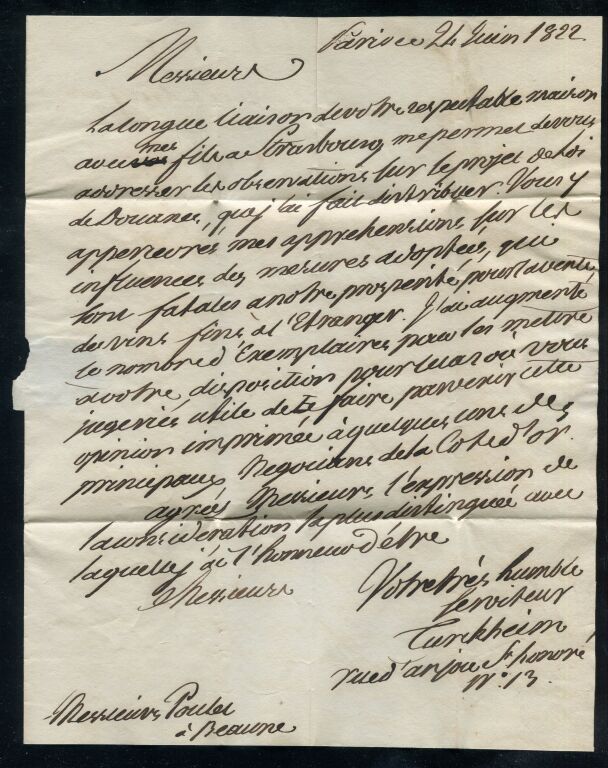 Paris ce 24 Juin 1822
Messieurs
La longue liaison de votre respectable maison
avec mes fils a Strasbourg me permet de vous
adresser les observations sur le projet de loi
de Douanes, que j'ai fait distribuer. Vous y
appercevrés mes apprehensions sur les
influences des mesures adoptées, qui
sont fatales a notre prosperité, pour la vente
des vins fins a l'Etranger. J'ai augmenté
le nombre d'Exemplaires pour les mettre
a votre disposition pour le cas où vous
jugeriés utile de faire parvenir cette
opinion imprimée à quelques uns des
principaux Negocians de la Cote d'or.
agréés Messieurs l'expression de
la consideration la plus distinguée avec
laquelle j'ai l'honneur d'être
Messieurs
Votre très humble
serviteur
Turckheim
rue d'anjou St honoré
N.° 13.
Messieurs Poulet
à Beaune